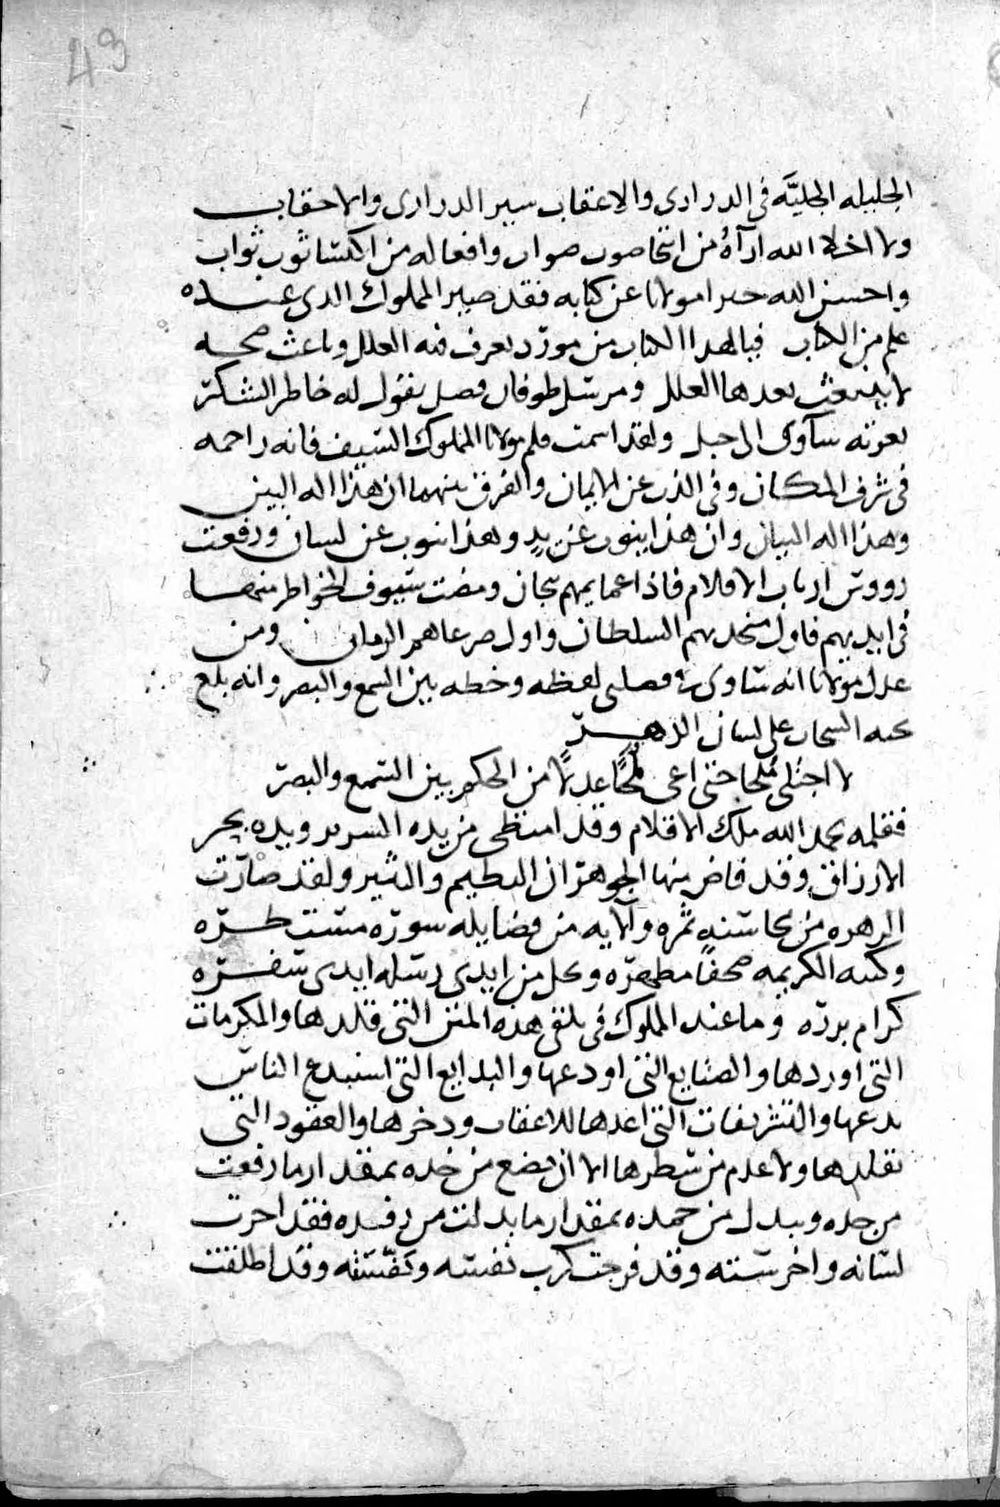 43
الجليله الجليَّه في الدراري والاعقاب سير الدراري والاحقاب
ولا اخلا الله ارآهُ من انتحا صوب صواب وافعاله من اكتسا ثوب ثواب
واحسن الله جزا مولانا عن كتابه فقد صير المملوك الذي عنده
علم من الكتاب فيا لهذا الكتاب من مورد يعرف فيه العلل وباعث صحه
لا ينبعث بعدها العلل ومرسل طوفان فصل يقول له خاطر الشكر
بعزته سآوي الى جبل ولقد اسمت قلم مولانا المملوك السيف فانه زاحمه
في شرف المكان وفي الذب عن الايمان والفرق بينهما ان هذا اله البين
وهذا اله البيان وان هذا ينوب عن يدٍ وهذا ينوب عن لسان ورفعت
رووس ارباب الاقلام فاذا عمايمهم تيجان ومضت سيوف الخواطر منها
في ايديهم فاول منجديهم السلطان واول صرعاهم الزمان ومن
عدل مولانا انه ساوى في فصلي لفظه وخطه بين السمع والبصر وانه بلغ
عنه السحاب على لسان الزهر
لا اجتلي مُلحا حتى اعي مُلحًا عدلًا من الحكم بين السمع والبصر
فقلمه بحمد الله ملك الاقلام وقد امتطى من يده السرير ويده بحر
الارزاق وقد فاض منها الجوهران النظيم والنثير ولقد صارت
الزهره من محاسنه ثمره والآيه من فضايله سوره مستطره
وكتبه الكريمه صحفًا مطهره وكل من ايدي رسله ايدي سفره
كرام برره وما عند المملوك في تلقي هذه المنن التي قلدها والمكرمات
التي اوردها والصنايع التي اودعها والبدايع التي استبدع الناس
بدعها والتشريفات التي اعدها للاعقاب ودخرها والعقود التي
تقلدها ولا عدم من سطرها الا ان يضع من خده بمقدار ما رفعت
من جده ويبذل من حمده بمقدار ما بدلت من رفده فقد احرت
لسانه واخرسته وقد فرجت كرب نفسه ونفسته وقد اطلقت